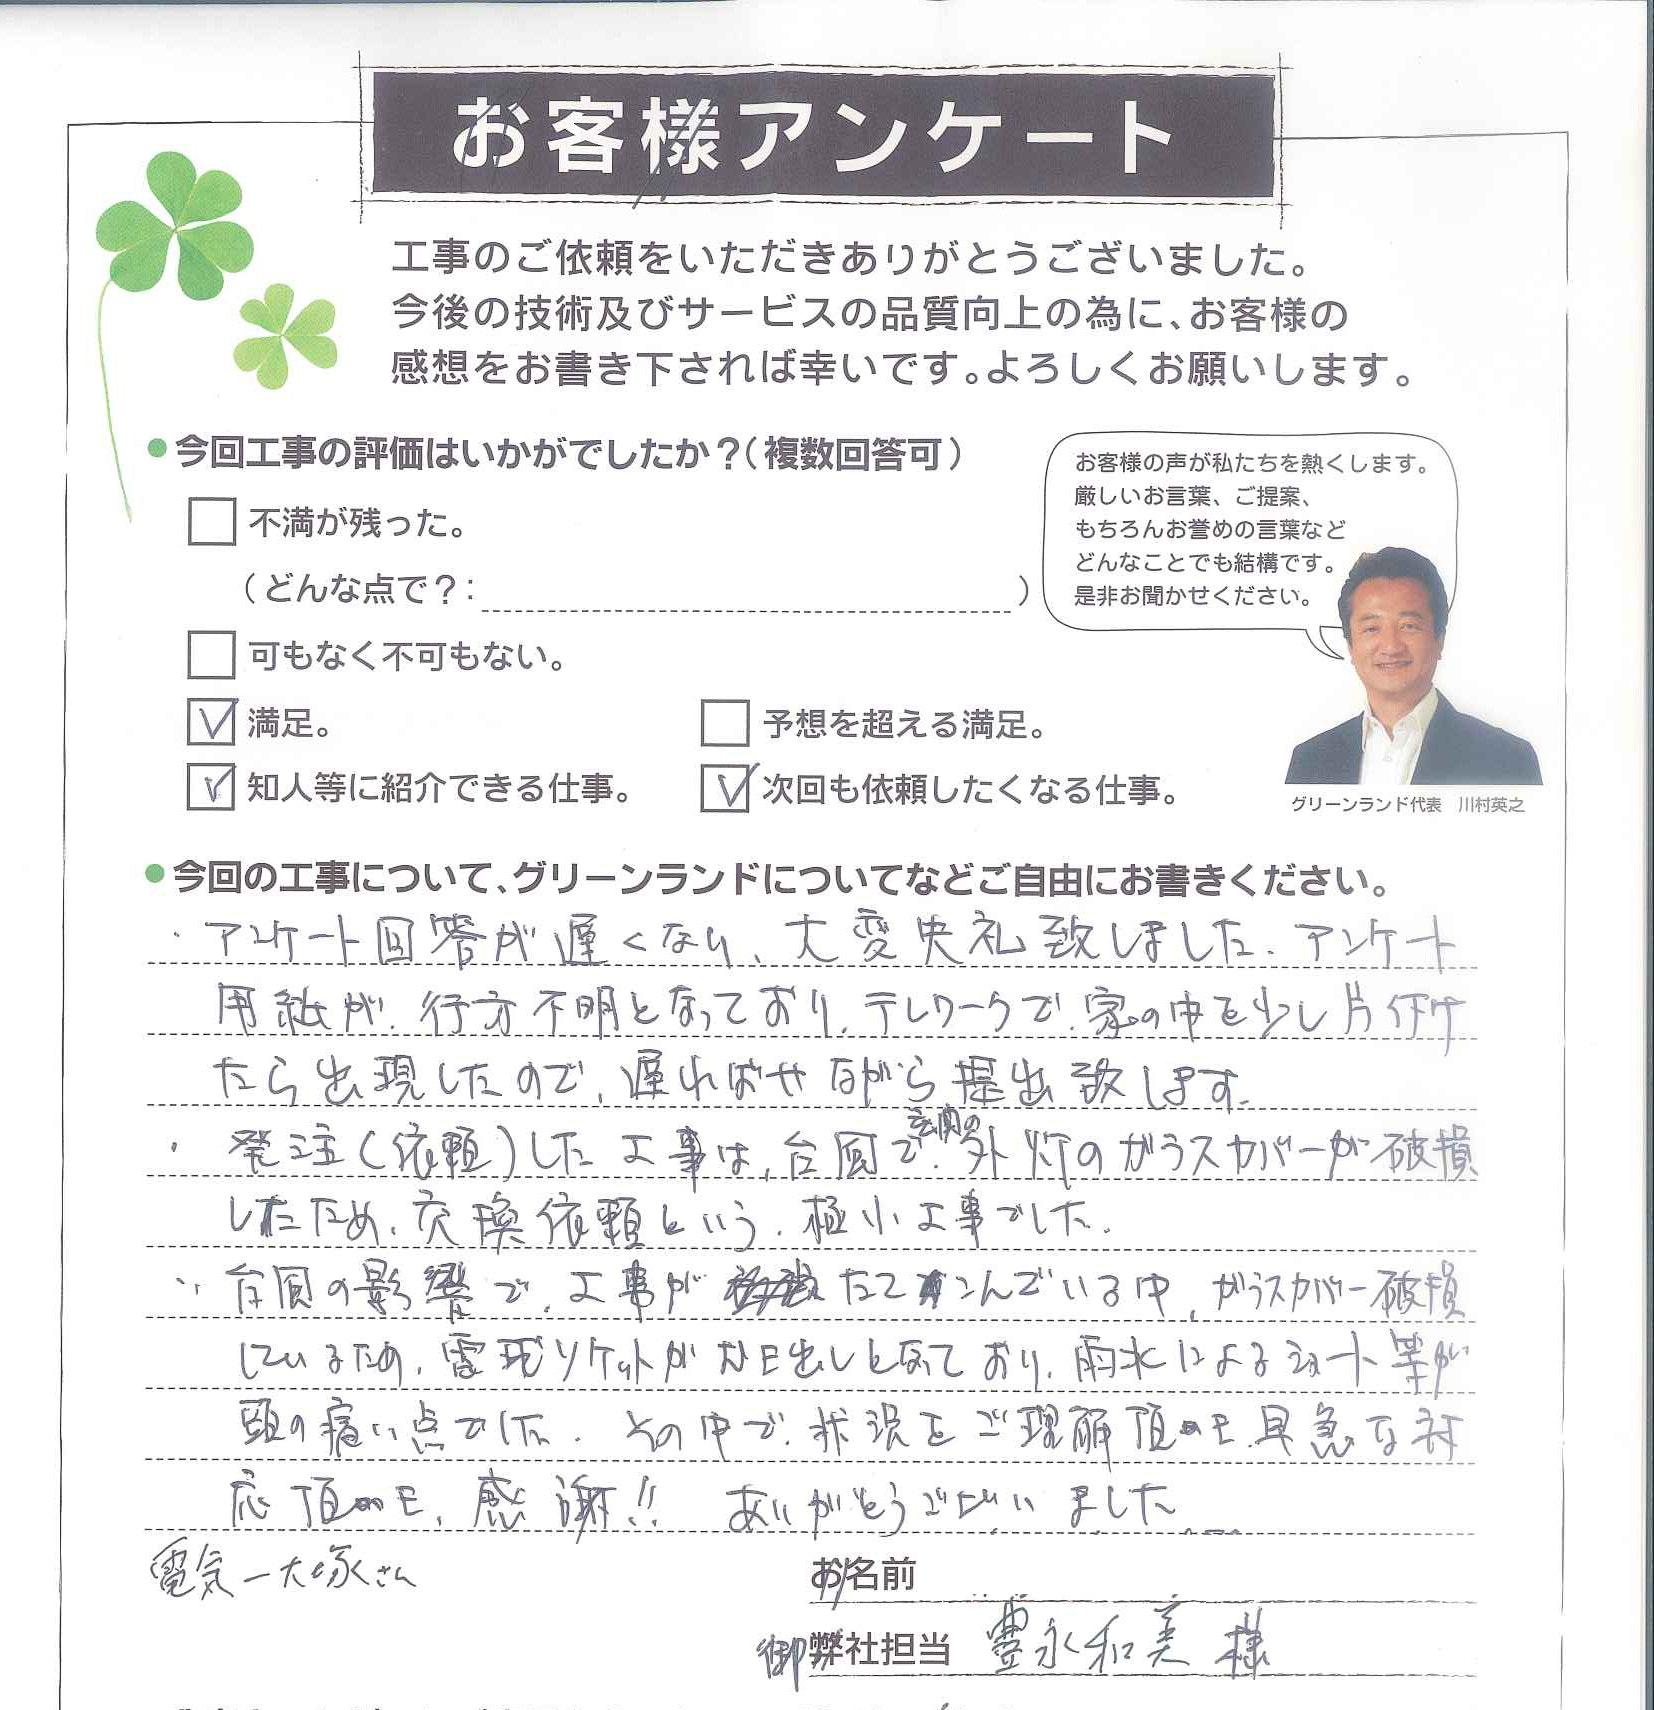 お客様アンケート
工事のご依頼をいただきありがとうございました。
今後の技術及びサービスの品質向上の為に、お客様の
感想をお書き下されば幸いです。よろしくお願いします。
今回工事の評価はいかがでしたか？（複数回答可）
不満が残った。
（どんな点で？：　）
可もなく不可もない。
満足。
予想を超える満足。
知人等に紹介できる仕事。
次回も依頼したくなる仕事。
お客様の声が私たちを熱くします。
厳しいお言葉、ご提案、
もちろんお誉めの言葉など
どんなことでも結構です。
是非お聞かせください。
グリーンランド代表　川村英之
今回の工事について、グリーンランドについてなどご自由にお書きください。
・アンケート回答が遅くなり、大変失礼致しました。アンケート
用紙が、行方不明となっており、テレワークで、家の中を少し片付け
たら出現したので、遅ればせながら提出致します。
・発注（依頼）した工事は、台風で、玄関の外灯のガラスカバーが破損
したため、交換依頼という、極小工事でした。
・台風の影響で、工事がたてこんでいる中、ガラスカバー破損
しているため、電球ソケットがむき出しとなっており、雨水によるショート等が
頭の痛い点でした。その中で、状況をご理解頂き、早急な対
応頂き、感謝!! ありがとうございました
電気－大塚さん
お名前
御弊社担当　豊永和美 様